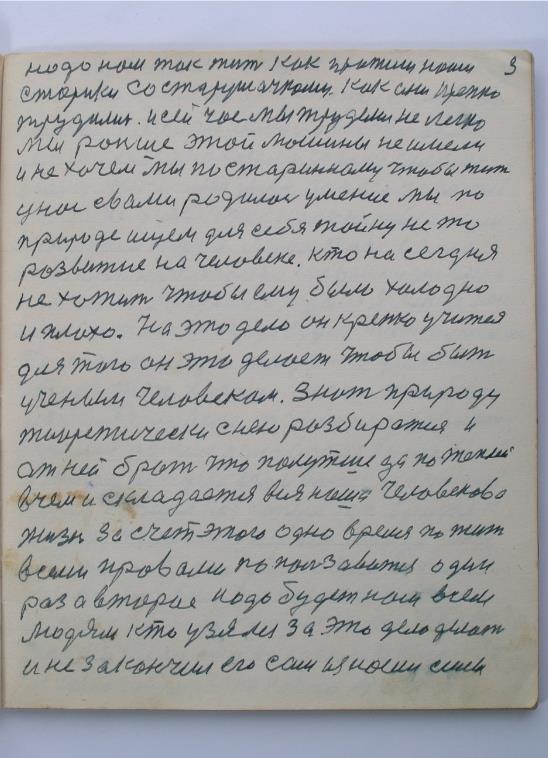 надо нам так жит как прожили наши 3
старики со старушачкоми. Как они крепко
трудилис. и сей час мы трудемся не легко
мы рание этой машины не имели
и не хочем мы по старинному чтобы жит
у нас с вами родилос умение мы по
природе ищем для себя тайну не то
розвитие на человеке. кто на сегодня
не хотит чтобы ему было холодно
и плохо. На это дело он крепко учится
для того он это делает чтобы быт
ученым человеком. Знат природу
теоретически с нею розбиратся и
от ней брат что получше да по теплей
в чем и складается вся наша человекова
жизн за счет этого одно время по жит
всеми провами по ползаватся один
раз а второе надо будет нам всем
людям кто узялся за это дело делат
и не закончил его сам